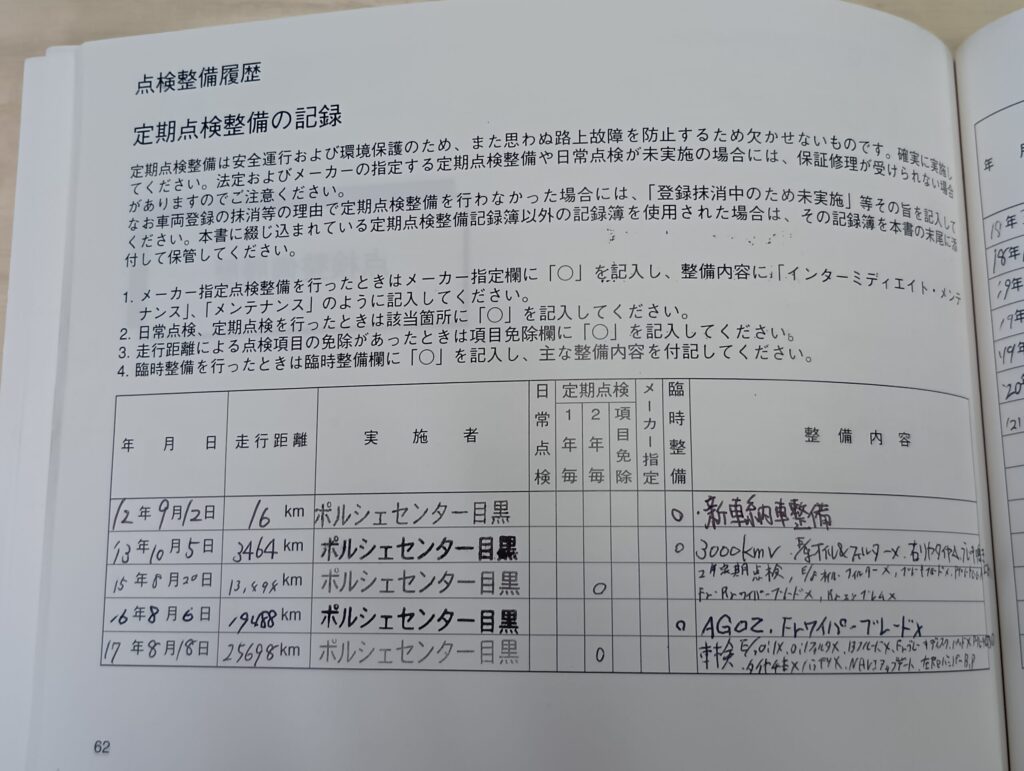 点検整備履歴
定期点検整備の記録
定期点検整備は安全運行および環境保護のため、また思わぬ路上故障を防止するため欠かせないものです。確実に実施し
てください。法定およびメーカーの指定する定期点検整備や日常点検が未実施の場合には、保証修理が受けられない場合
がありますのでご注意ください。
なお車両登録の抹消等の理由で定期点検整備を行わなかった場合には、「登録抹消中のため未実施」等その旨を記入して
ください。本書に綴じ込まれている定期点検整備記録簿以外の記録簿を使用された場合は、その記録簿を本書の末尾に添
付して保管してください。
1. メーカー指定点検整備を行ったときはメーカー指定欄に「○」を記入し、整備内容に「インターミディエイト・メンテ
ナンス」、「メンテナンス」のように記入してください。
2. 日常点検、定期点検を行ったときは該当箇所に「○」を記入してください。
3. 走行距離による点検項目の免除があったときは項目免除欄に「○」を記入してください。
4. 臨時整備を行ったときは臨時整備欄に「○」を記入し、主な整備内容を付記してください。
年 月 日 走行距離 実施者 日常点検 定期点検 1年毎 2年毎 項目免除 メーカー指定 臨時整備 整備内容
12年9月12日 16 km ポルシェセンター目黒 ○ ・新車納車整備
'13年10月5日 3464 km ポルシェセンター目黒 ○ 3000kmv
15年8月20日 13,498 km ポルシェセンター目黒 ○ 2年定期点検
16年8月6日 19488 km ポルシェセンター目黒 ○ AG02, Frワイパーブレードx
17年8月18日 25698 km ポルシェセンター目黒 ○ 車検
62
年